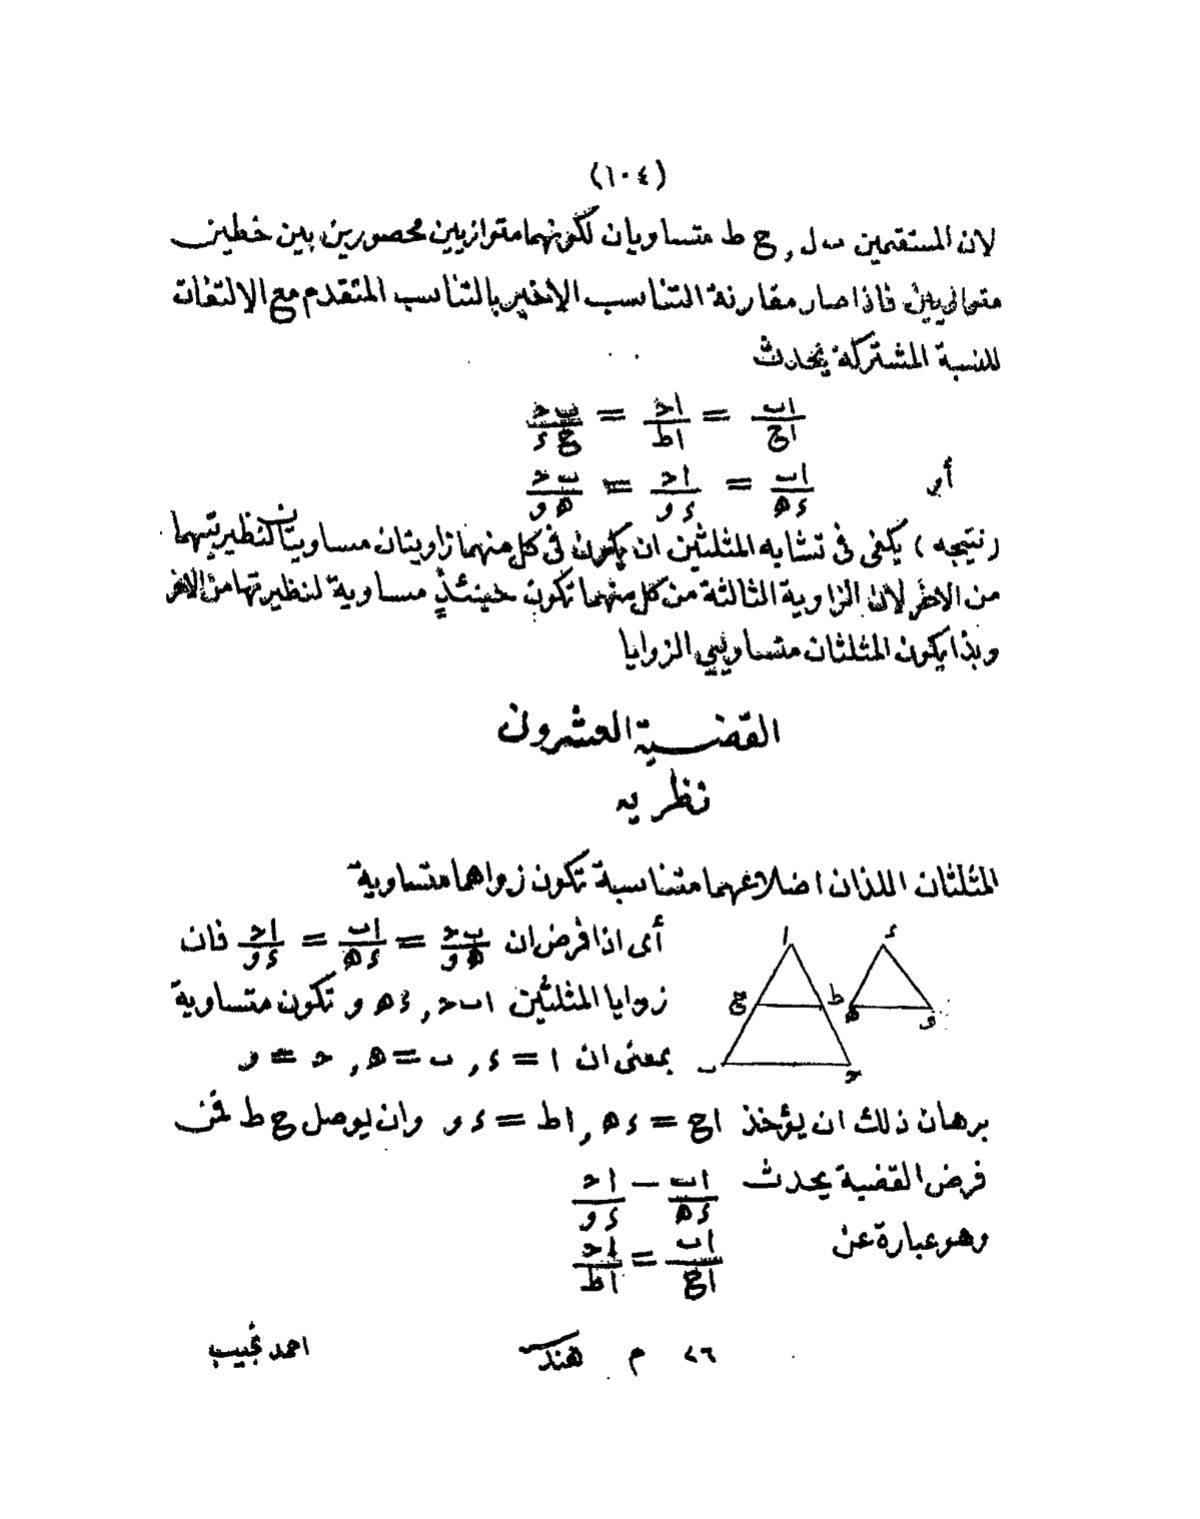 (١٠٤)
لان المستقمين ىـ ل , ع ط متساويان لكونهما متوازيين محصورين بين خطين
متوازيين فاذا صار مقارنة التناسب الاخير بالتناسب المتقدم مع الالتفات
للنسبة المشتركة يحدث
اب/اع = اح/اط = بح/عء
أو اب/ءه = اح/ءو = بح/هو
(نتيجه) يكفى فى تشابه المثلثين ان يكون فى كل منهما زاويتان مساويتان لنظيرتيهما
من الاخر لان الزاوية الثالثة من كل منهما تكون حينئذٍ مساوية لنظيرتها من الاخر
وبذا يكون المثلثان متساويي الزوايا
القضية العشرون
نظريه
المثلثان اللذان اضلاعهما متناسبة تكون زواهما متساوية
أى اذا فرض ان بح/هو = اب/ءه = اح/ءو فان
زوايا المثلثين ابح , ءهو تكون متساوية
بمعنى ان ا = ء , ب = ه , ح = و
ا
ء
ع
ط
ه
و
ب
ح
برهان ذلك ان يؤخذ اع = ءه , اط = ءو وان يوصل ع ط فمن
فرض القضية يحدث اب/ءه — اح/ءو
وهو عبارة عن اب/اع = اح/اط
٢٦ م هند
احمد نجيب